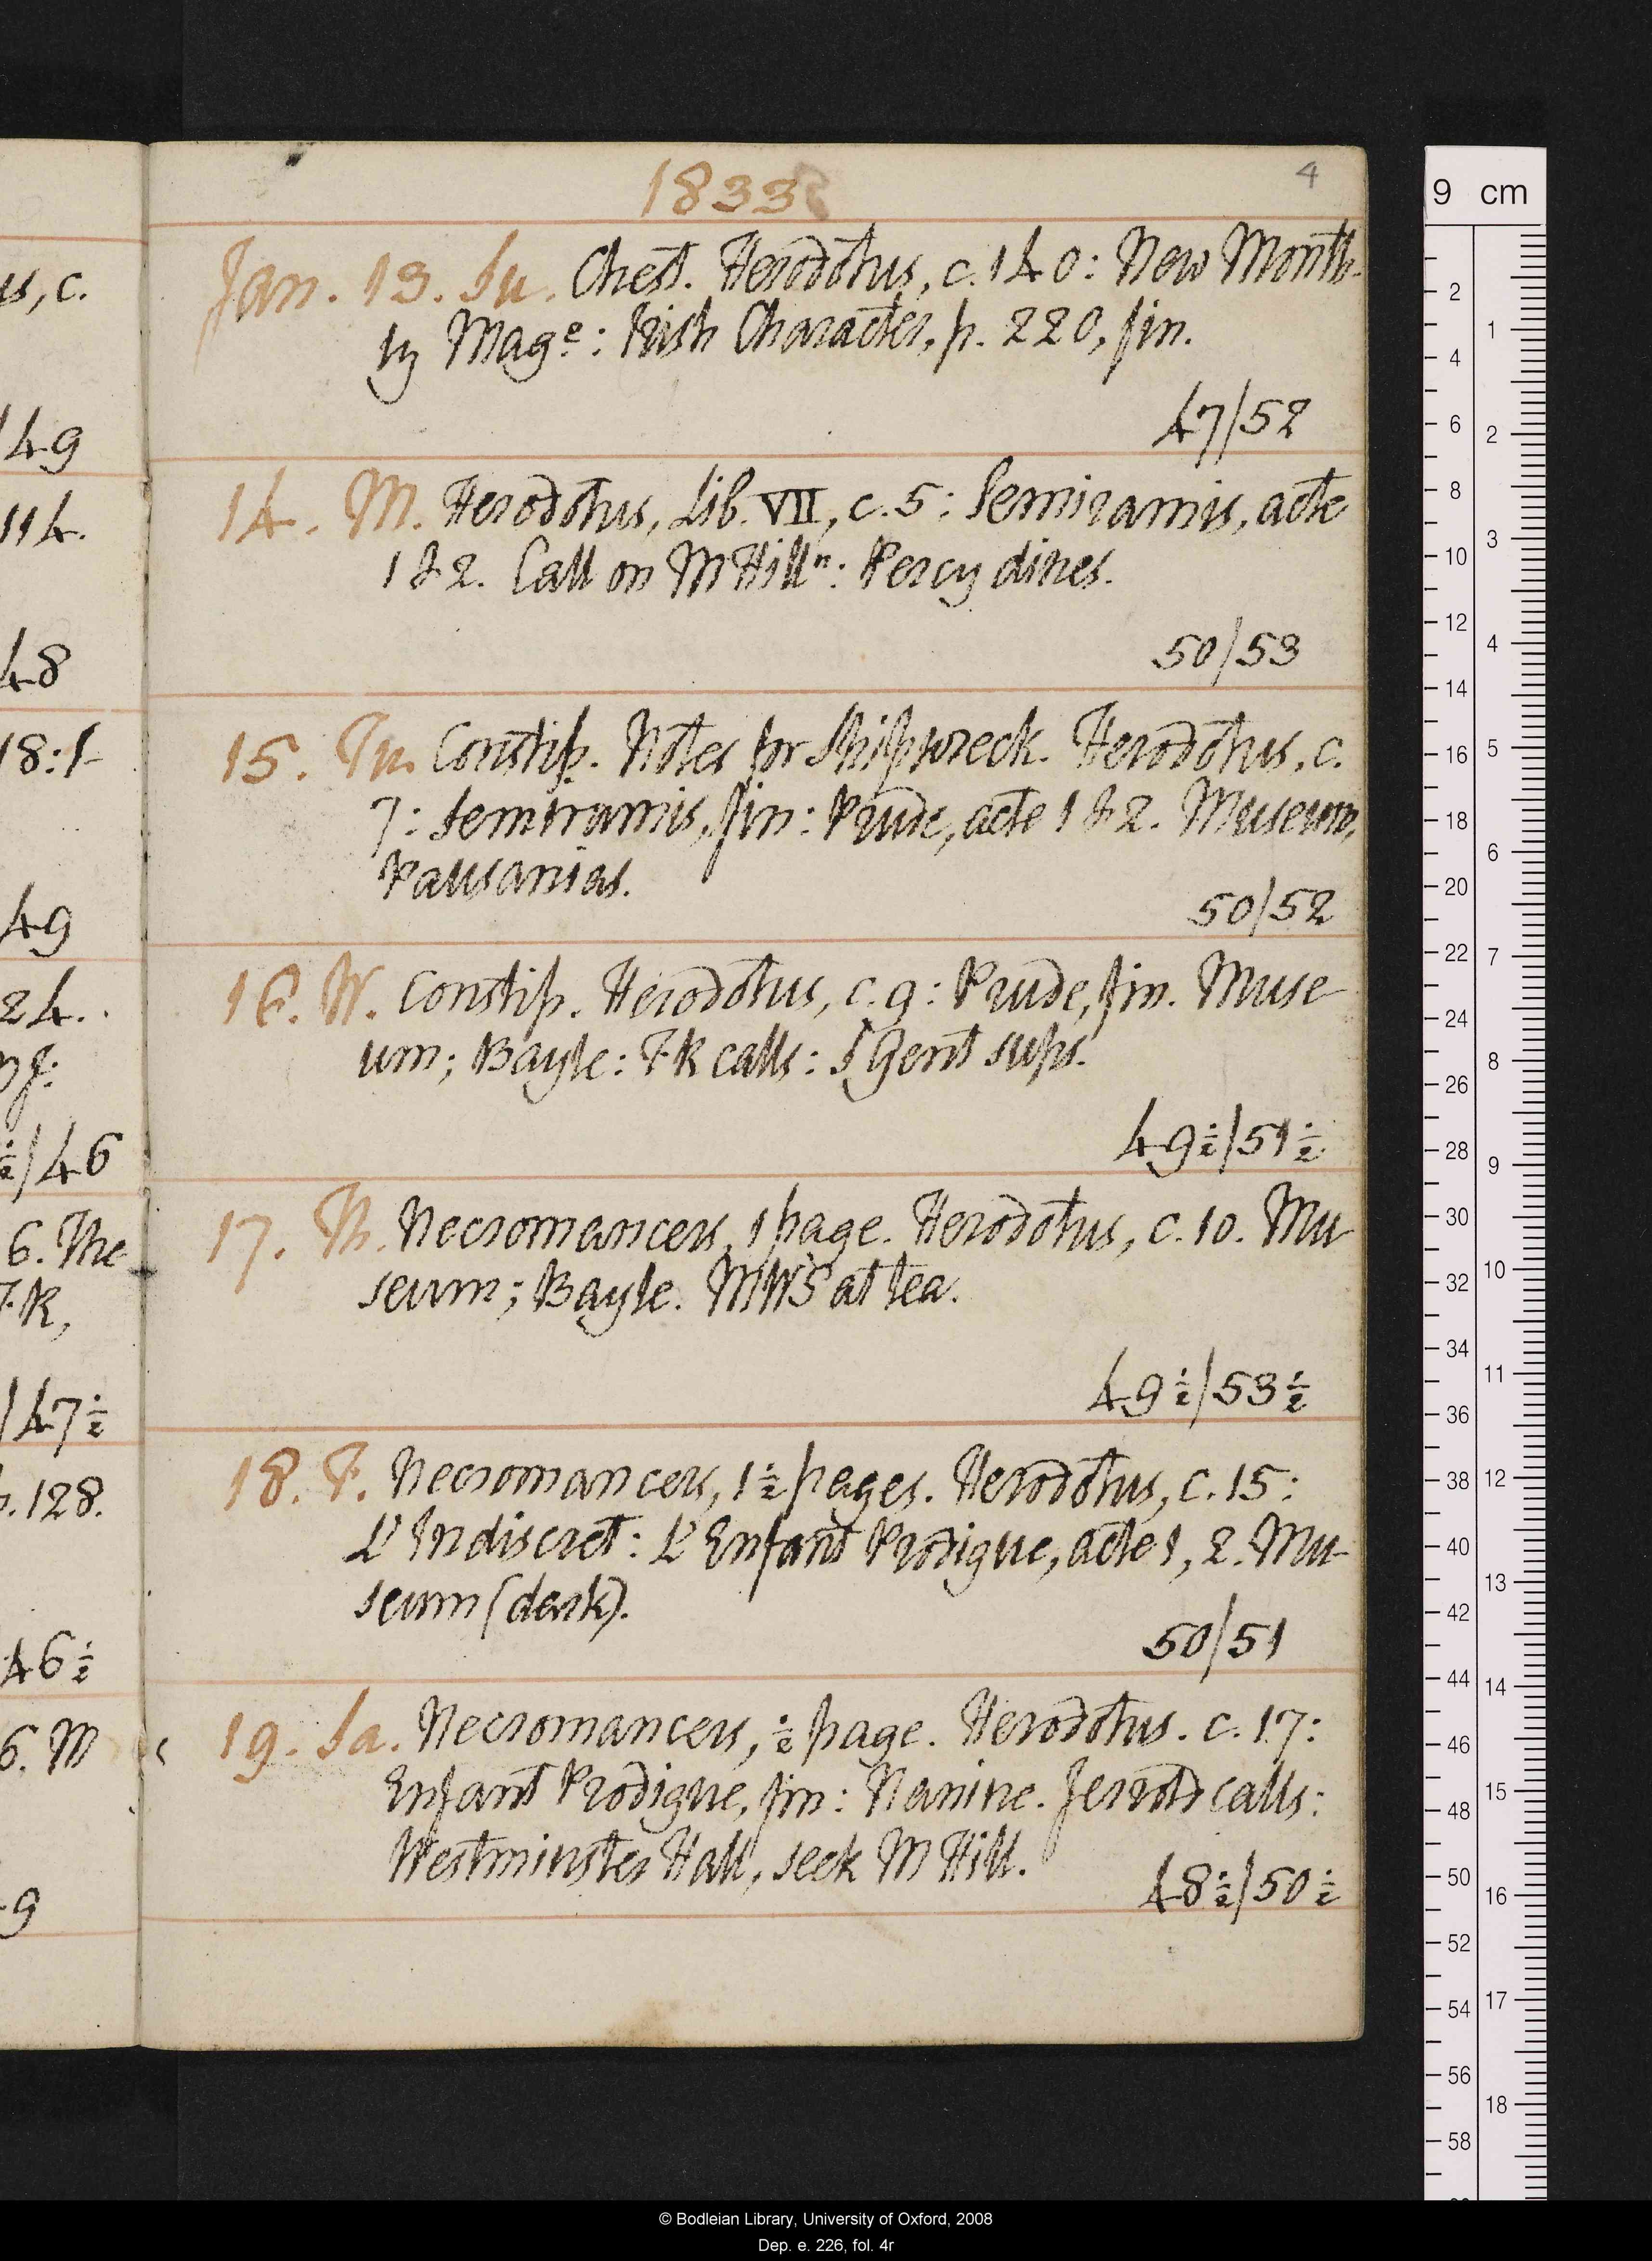 1833
4
Jan. 13. Su. Chest. Herodotus, c. 140: New Month-
ly Mage: Irish Character, p. 220, fin.
47/52
14. M. Herodotus, Lib. VII, c. 5: Semiramis, acte
1 & 2. Call on M Hilln: Percy dines.
50/53
15. Tu. Constip. Notes for Shipwreck. Herodotus, c.
7: Semiramis, fin: Prude, acte 1 & 2. Museum,
Pausanias.
50/52
16. W. Constip. Herodotus, c. 9: Prude, fin. Muse-
um; Bayle: FK calls: S Gent sups.
49½/51½
17. Th. Necromancers, 1 page. Herodotus, c. 10. Mu-
seum; Bayle. MWS at tea.
49½/53½
18. F. Necromancers, 1½ pages. Herodotus, c. 15:
L'Indiscret: L'Enfant Prodigue, acte 1, 2. Mu-
seum (dark).
50/51
19. Sa. Necromancers, ½ page. Herodotus. c. 17:
Enfant Prodigue, fin: Nanine. Jerrold calls:
Westminster Hall, seek M Hill.
48½/50½
us, c.
149
114.
48
18: 1-
49
24.
½/46
6. The
FK,
/47½
p. 128.
46½
6. M
9
9 cm
2 4 6 8 10 12 14 16 18 20 22 24 26 28 30 32 34 36 38 40 42 44 46 48 50 52 54 56 58
1 2 3 4 5 6 7 8 9 10 11 12 13 14 15 16 17 18
© Bodleian Library, University of Oxford, 2008
Dep. e. 226, fol. 4r